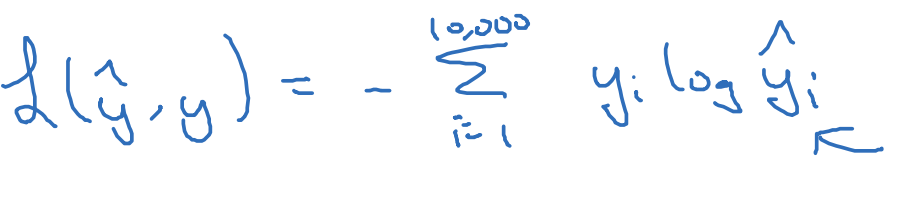 ℒ(ŷ, y) = - ∑_{i=1}^{10,000} y_i log ŷ_i